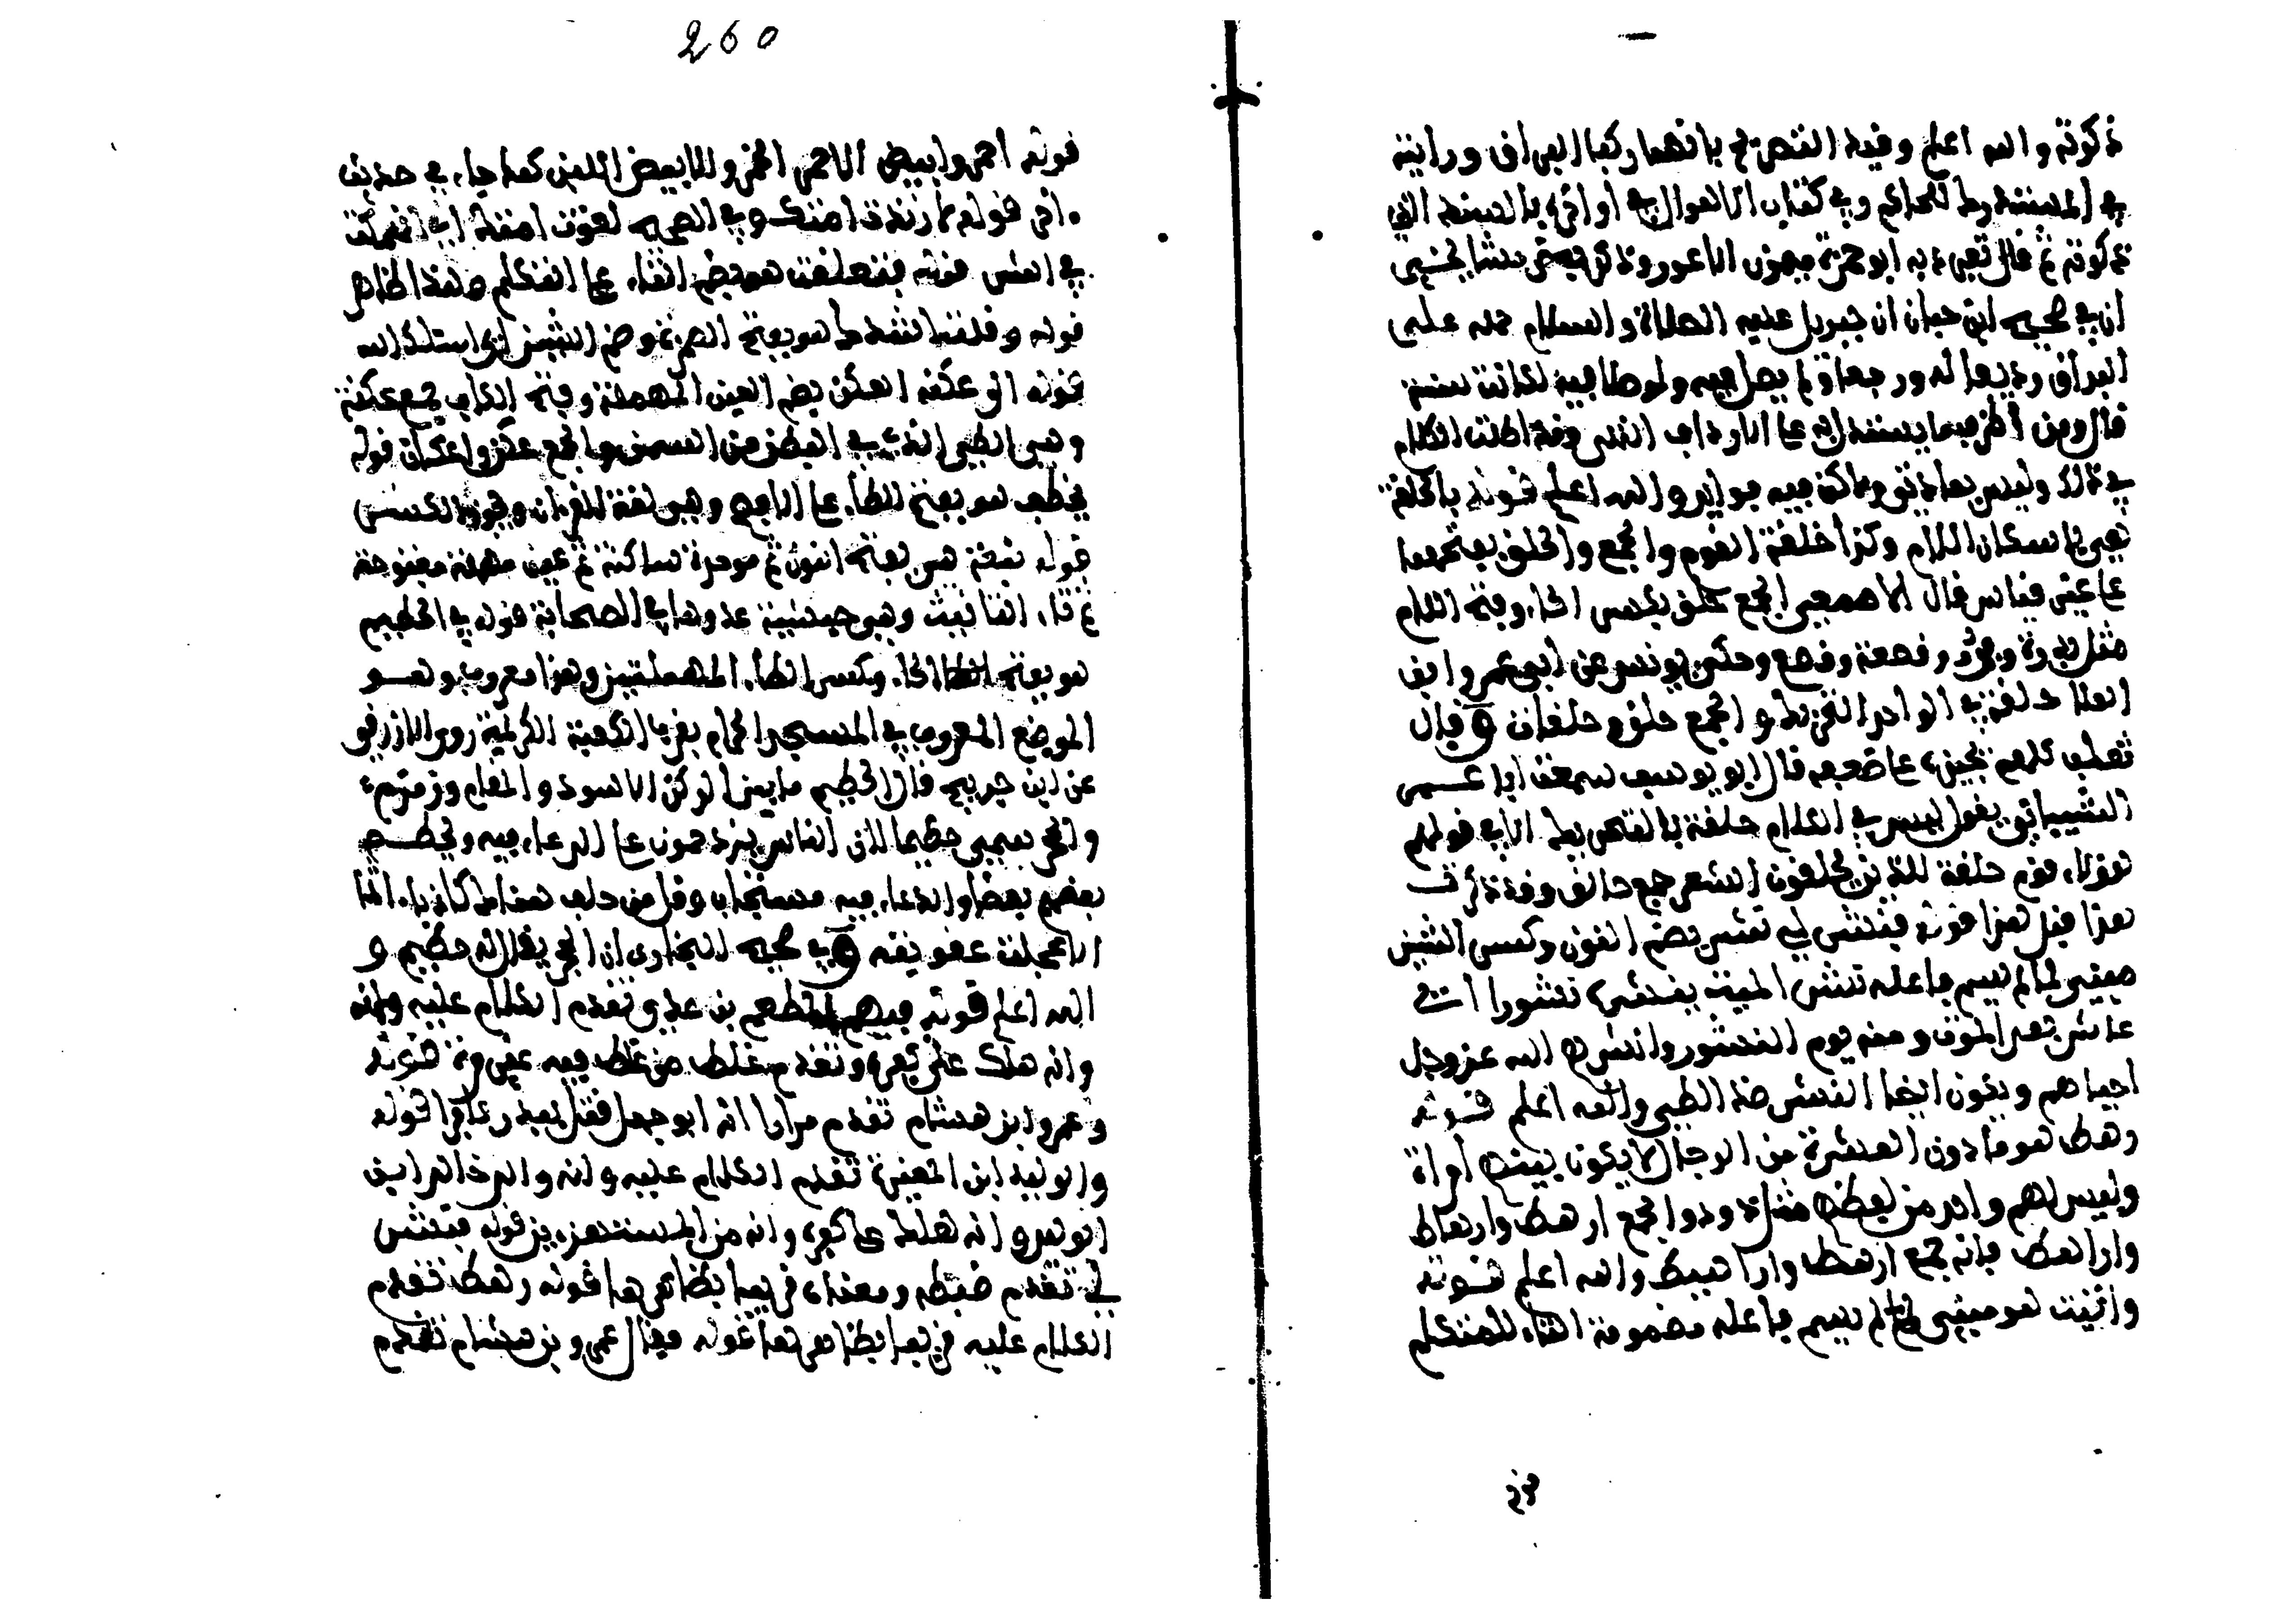 ذكرته والله اعلم وفيه التصريح بانهما ركبا البراق ورايته
في المستدرك للحاكم وفي كتاب الاهوال في اواخره بالسند الذي
ذكرته ثم قال تفرد به ابو حمزة ميمون الاعور
ان في صحيح ابن حبان ان جبريل عليه الصلاة والسلام حمله على
البراق رديفا له ورجعا ولم يصل فيه ولو صلا فيه لكانت سنة
قال ومن اظرف ما يستدل به على الارداف الذي وقد اطلت الكلام
في ذلك وليس بعادتي ولكن فيه فوايد والله اعلم قوله بالحلقة
هي باسكان اللام وكذا حلقة القوم والجمع والحلق بفتحهما
على غير قياس قال الاصمعي الجمع حلق بكسر الحاء وفتح اللام
مثل بدرة وبدر وقصعة وقصع وحكى يونس عن ابي عمرو ابن
العلا حلقة في الواحد بالتحريك والجمع حلق وحلقات وقال
ثعلب كلهم يجيزه على ضعفه قال ابو يوسف سمعت ابا عمرو
الشيباني يقول ليس في الكلام حلقة بالتحريك الا في قولهم
هؤلاء قوم حلقة للذين يحلقون الشعر جمع حالق وقد ذكرت
هذا قبل هذا قوله فنشر لي نشر بضم النون وكسر الشين
مبني لما لم يسم فاعله نشر الميت ينشر نشورا اي
عاش بعد الموت ومنه يوم النشور وانشرهم الله عز وجل
احياهم ويكون ايضا النشر ضد الطي والله اعلم قوله
رهط هو ما دون العشرة من الرجال لا يكون فيهم امراة
وليس لهم واحد من لفظهم مثل ذود والجمع ارهط وارهاط
واراهط فانه جمع ارهط واراهيط والله اعلم قوله
واتيت هو مبني لما لم يسم فاعله مضمومة التاء للمتكلم
260
قوله احمر وابيض الاحمر الخمر والابيض اللبن كما جاء في حديث
اخر قوله ما زندت امتك وفي الصحيح لغوت امتك اي انهمكت
في الشر قوله فتعلقت هو بضم التاء على التكلم وهذا ظاهر
قوله وقلت انشدك هو بفتح الهمزة وضم الشين اي اسئلك الله
قوله الى عكنه العكن بضم العين المهملة وفتح الكاف جمع عكنة
وهي الطي الذي في البطن من السمن والجمع عكن واعكان قوله
يخطف هو بفتح الطاء على الافصح وهي لغة القران ويجوز الكسر
قوله نبعة هي بفتح النون ثم موحدة ساكنة ثم عين مهملة مفتوحة
ثم تاء التانيث وهي حبشية عدوها في الصحابة قوله في الحطيم
هو بفتح الحاء وكسر الطاء المهملتين وهذا معروف وهو
الموضع المعروف في المسجد الحرام بقرب الكعبة الكريمة روى الازرقي
عن ابن جريج قال الحطيم ما بين الركن الاسود والمقام وزمزم
والحجر سمي حطيما لان الناس يزدحمون على الدعاء فيه ويحطم
بعضهم بعضا والدعاء فيه مستجاب وقل من حلف هنالك كاذبا اثما
الا عجلت عقوبته وفي صحيح البخاري ان الحجر يقال له حطيم و
الله اعلم قوله فيهم المطعم بن عدي تقدم الكلام عليه وانه
وانه هلك على كفره وتقدم غلط من غلط فيه غير مرة قوله
وعمرو ابن هشام تقدم مرارا انه ابو جهل قتل ببدر كافرا قوله
والوليد ابن المغيرة تقدم الكلام عليه وانه والد خالد ابن
الوليد وانه هلك على كفره وانه من المستهزءين قوله فنشر
لي تقدم ضبطه ومعناه قريبا بظاهرها قوله رهط تقدم
الكلام عليه قريبا بظاهرها قوله فقال عمرو بن هشام تقدم